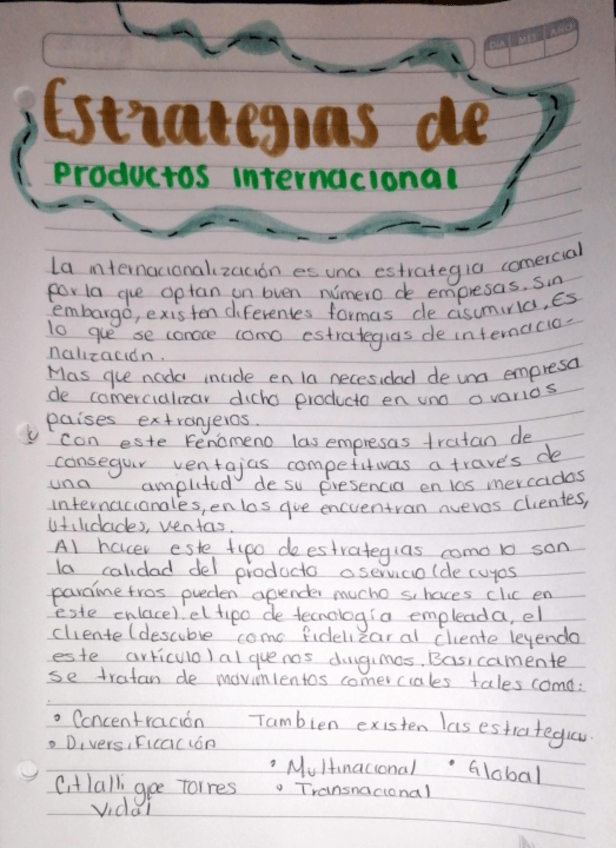 DIA MES AÑO
Estrategias de
Productos internacional
La internacionalización es una estrategia comercial
por la que optan un buen número de empresas. Sin
embargo, existen diferentes formas de asumirla. Es
lo que se conoce como estrategias de internacio-
nalización.
Mas que nada incide en la necesidad de una empresa
de comercializar dicho producto en uno o varios
países extranjeros.
Con este Fenómeno las empresas tratan de
conseguir ventajas competitivas a través de
una amplitud de su presencia en los mercados
internacionales, en los que encuentran nuevos clientes,
utilidades, ventas.
Al hacer este tipo de estrategias como lo son
la calidad del producto o servicio (de cuyos
parámetros pueden aprender mucho si haces clic en
este enlace). el tipo de tecnología empleada, el
cliente (descubre como fidelizar al cliente leyendo
este artículo) al que nos dirigimos. Basicamente
se tratan de movimientos comerciales tales como:
• Concentración Tambien existen las estrategias.
• Diversificación
• Multinacional • Global
Citlalli gpe Torres • Transnacional
Vidal